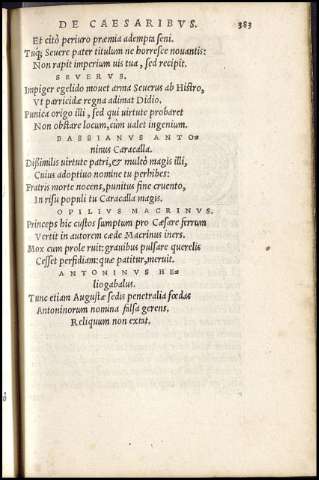 DE CAESARIBVS. 383
Et citò periuro præmia adempta seni.
Tuq; Seuere pater titulum ne horresce nouantis:
Non rapit imperium uis tua, sed recipit.
SEVERVS.
Impiger egelido mouet arma Seuerus ab Histro,
Vt parricidæ regna adimat Didio.
Punica origo illi, sed qui uirtute probaret
Non obstare locum, cùm ualet ingenium.
BASSIANVS ANTO-
ninus Caracalla.
Dissimilis uirtute patri, & multò magis illi,
Cuius adoptiuo nomine tu perhibes:
Fratris morte nocens, punitus fine cruento,
In risu populi tu Caracalla magis.
OPILIVS MACRINVS.
Princeps hic custos sumptum pro Cæsare ferrum
Vertit in autorem cæde Macrinus iners.
Mox cum prole ruit: grauibus pulsare querelis
Cesset perfidiam: quæ patitur, meruit.
ANTONINVS HE-
liogabalus.
Tunc etiam Augustæ sedis penetralia fœdas
Antoninorum nomina falsa gerens.
Reliquum non extat.